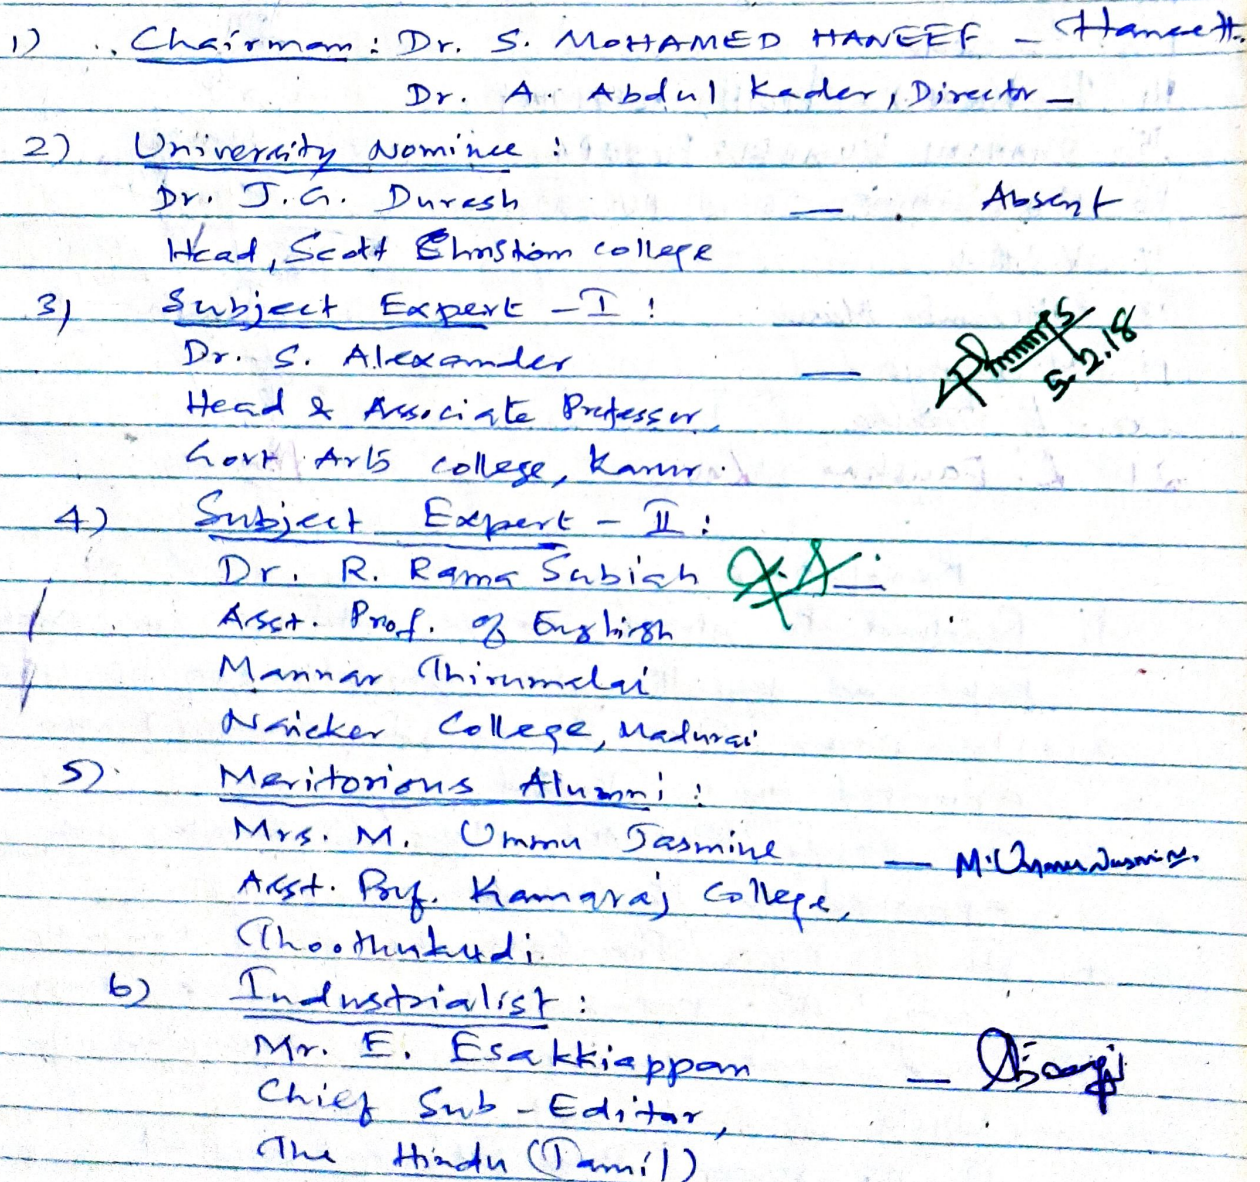 1) Chairman : Dr. S. MOHAMED HANEEF - Haneef
Dr. A. Abdul Kader, Director -
2) University Nominee :
Dr. J.G. Duresh — Absent
Head, Scott Christian college
3) Subject Expert - I :
Dr. S. Alexander — 5.2.18
Head & Associate Professor,
Govt Arts college, Karur.
4) Subject Expert - II :
Dr. R. Rama Subiah
Asst. Prof. of English
Mannar Thirumalai
Naicker College, Madurai
5) Meritorious Alumni :
Mrs. M. Ummu Jasmine — M. Ummu Jasmine.
Asst. Prof. Kamaraj College,
Thoothukudi
6) Industrialist :
Mr. E. Esakkiappan —
Chief Sub-Editor,
The Hindu (Tamil)